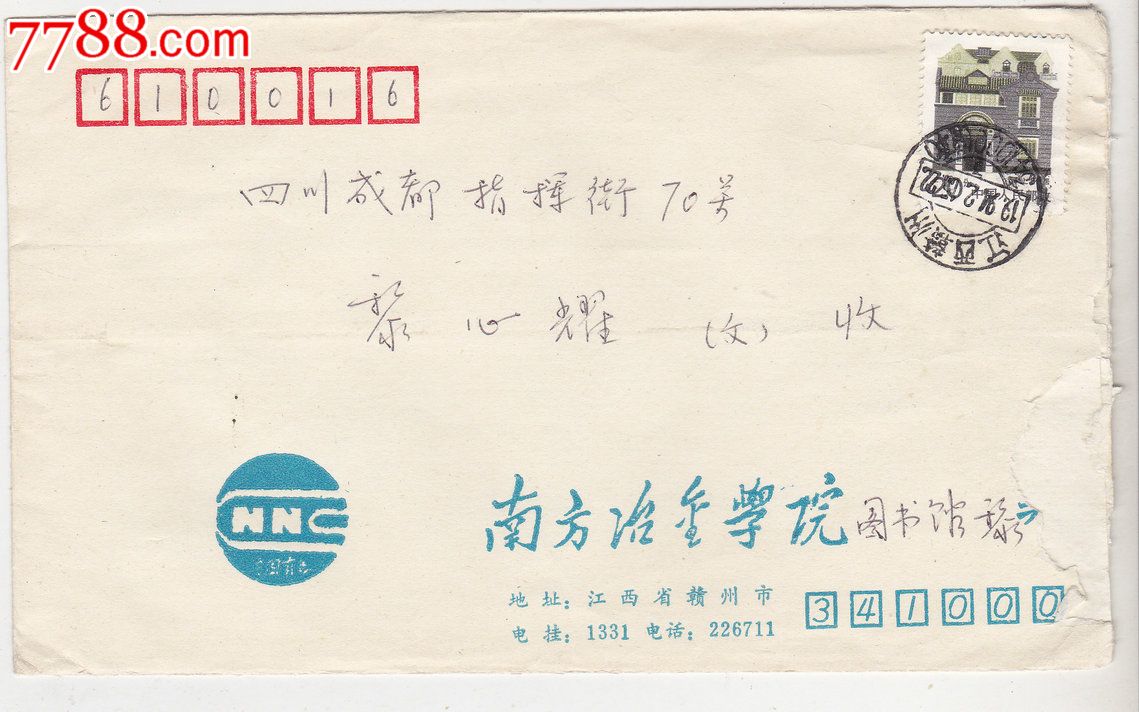 7788.com
610016
四川成都指挥街70号
黎心耀(女)收
CNNC
南方冶金学院图书馆黎
地址:江西省赣州市
341000
电挂:1331 电话:226711
江西赣州